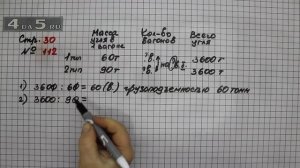 4DS.RU
Стр. 30
№ 112
Масса угля в 1 вагоне
Кол-во вагонов
Всего угля
1 тип 60т ?в. на ?в. 3600 т
2 тип 90т ?в. 3600 т
1) 3600 : 60 = 60 (в.) грузоподъемностью 60 тонн
2) 3600 : 90 =